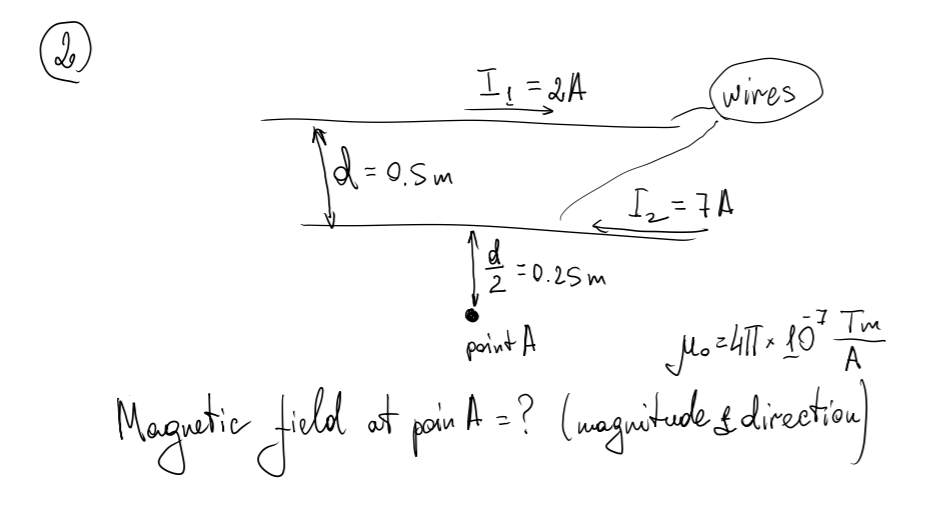 2
I₁ = 2A
wires
d = 0.5m
I₂ = 7A
d/2 = 0.25m
point A
μ₀ = 4π × 10⁻⁷ Tm/A
Magnetic field at poin A = ? (magnitude & direction)